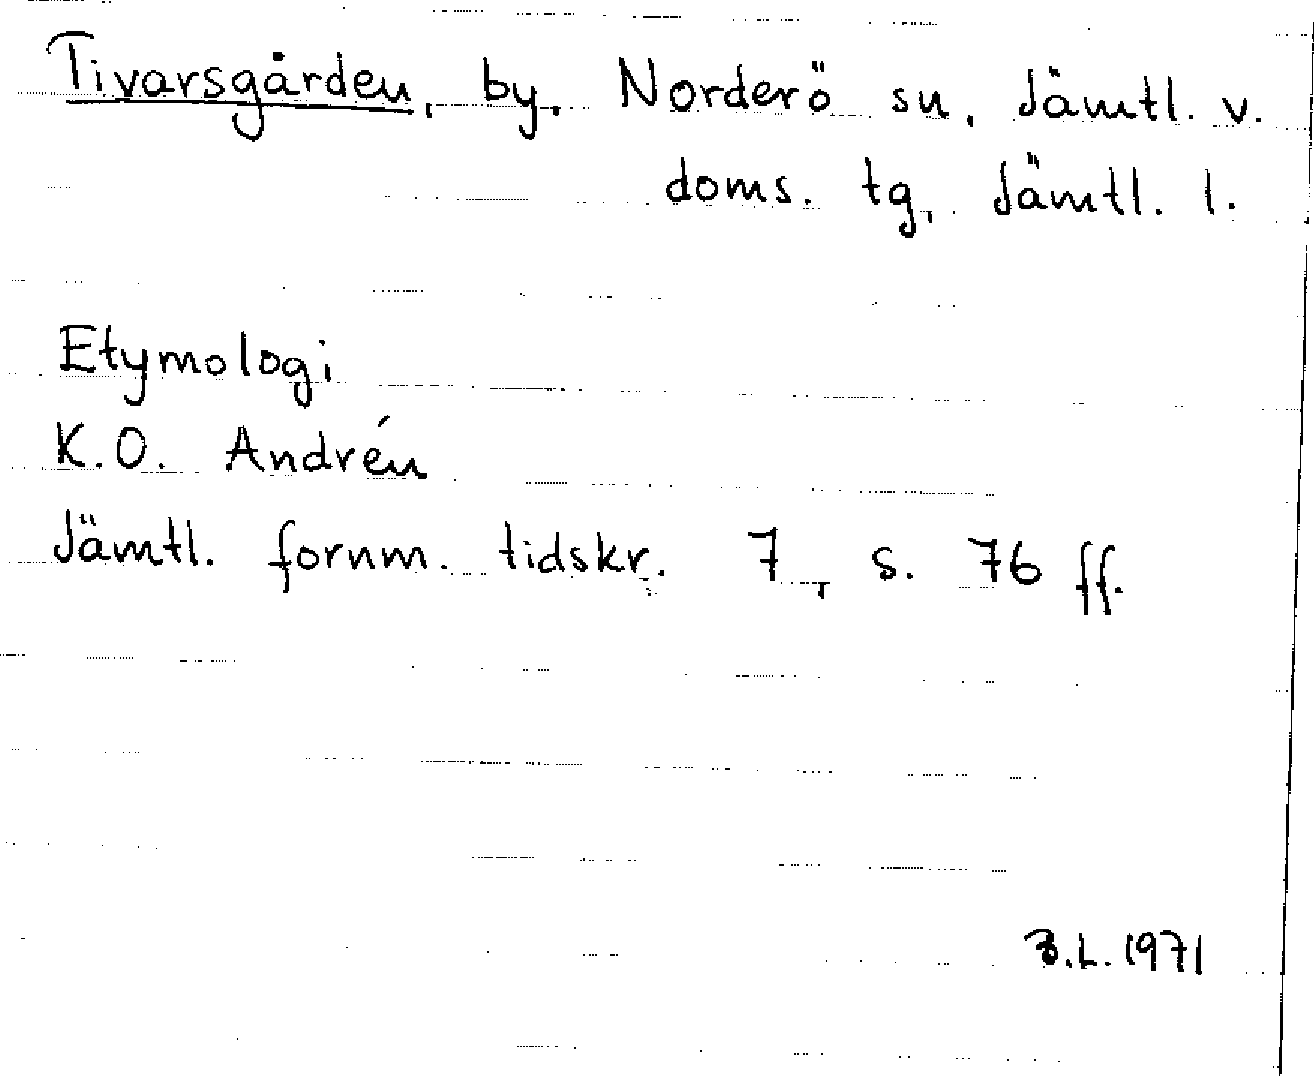 Tivarsgården, by, Norderö sn, Jämtl. v.
doms. tg, Jämtl. l.
Etymologi
K.O. Andrén
Jämtl. fornm. tidskr. 7, s. 76 ff.
B.L. 1971